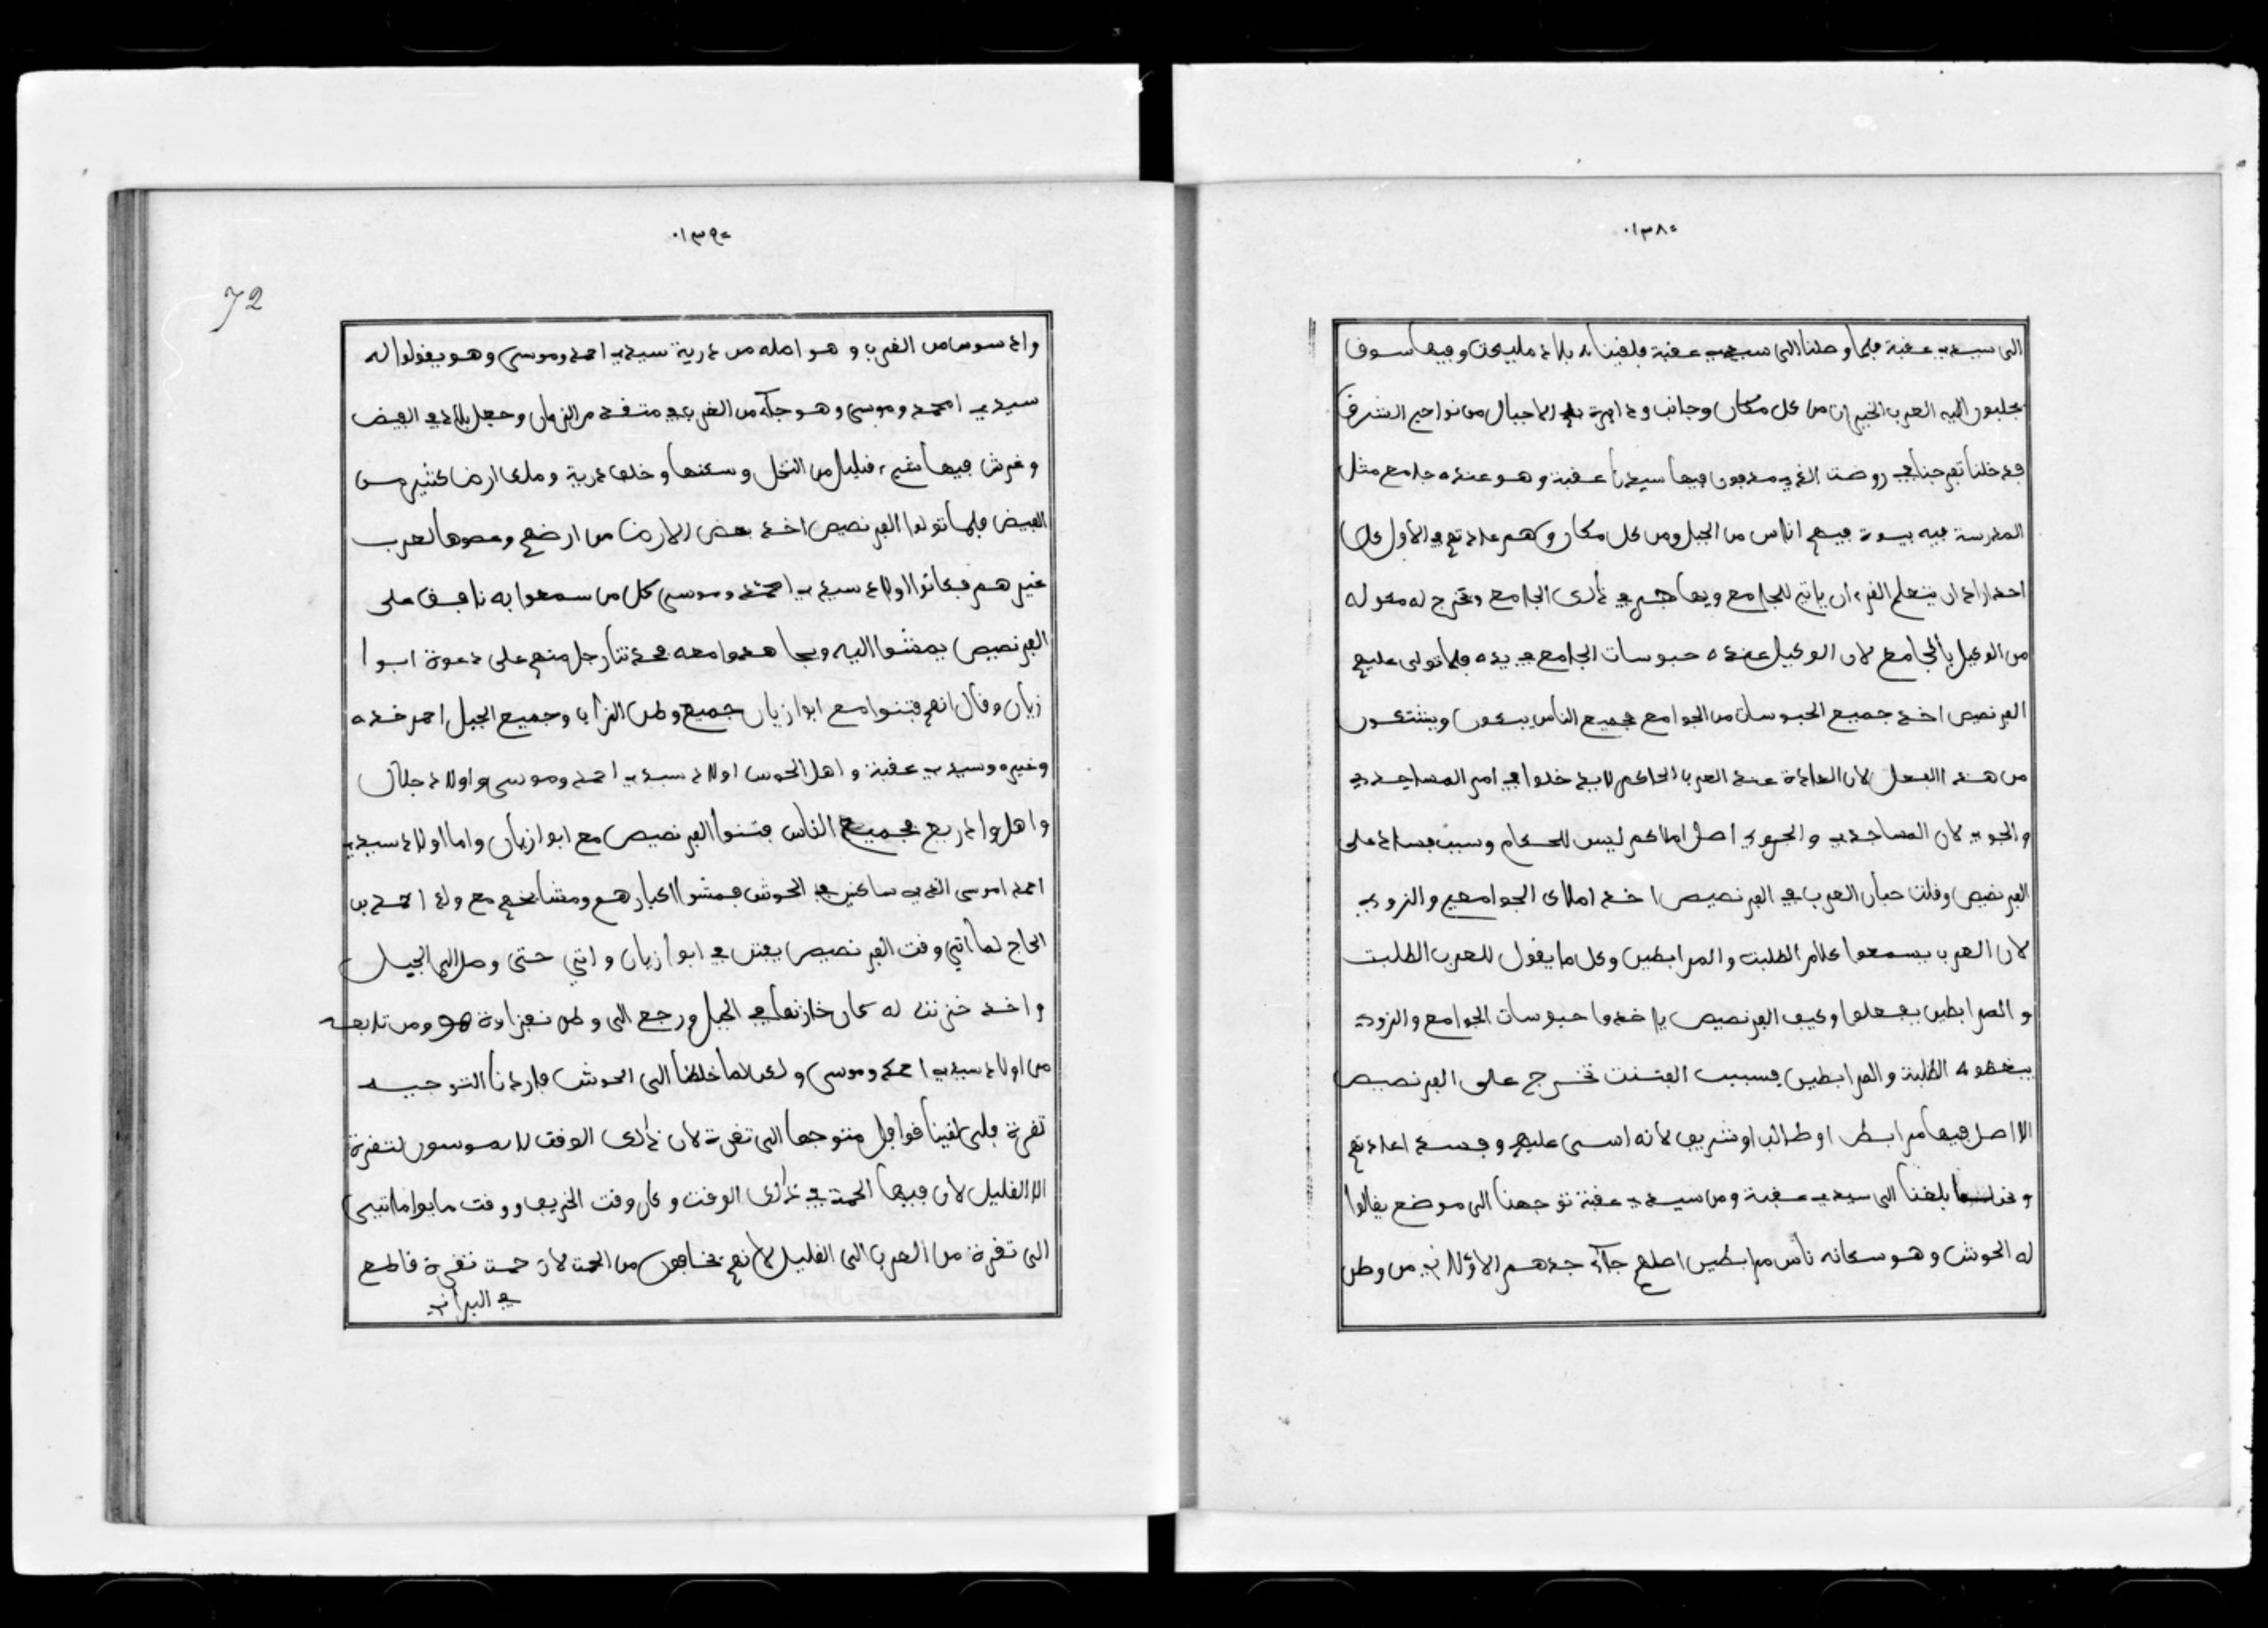 ٠١٣٨٠
الى سيدي عقبة فلما وصلنا الى سيدي عقبة فلقينا بلاد مليحت وفيها سوف
يجلبون اليه العرب الخيران من كل مكان وجانب ودايرة بها الاجبال من نواحي الشرق
فدخلنا تفرجنا في روضت الذي مدفون فيها سيدنا عقبة وهو عنده جامع مثل
المدرسة فيه بيوت فيهم اناس من الجبل ومن كل مكان وكهم عادتهم في الاول كل
احد اراد ان يتعلم القرءان ياتي للجامع ويهاجر في ذالك الجامع وتخرج له معوله
من الوكيل بالجامع لان الوكيل عنده حبوسات الجامع في يده فلما تولى عليهم
الفرنصيص اخذ جميع الحبوسات من الجوامع فجميع الناس يبكون ويشتكون
من هذا الفعل لان العادة عند العرب الحاكم لا يدخلوا في امر المساجدي
والجوي لان المساجدي والجوي اصل املاكهم ليس للحكام وسبب فساد على
الفرنصيص وقلت حبان العرب في الفرنصيص اخذ املاك الجوامع والزوي
لان العرب يسمعوا كلام الطلبت والمرابطين وكل ما يقول للعرب الطلبت
والمرابطين يفعلوا وكيف الفرنصيص ياخذوا حبوسات الجوامع والزوي
يبغضوه الطلبة والمرابطين فسبب الفتنت تخرج على الفرنصيص
الا اصل فيها مرابط او طالب او شريف لانه اسى عليهم وفسد اعادتهم
ونحن بلغنا الى سيدي عقبة ومن سيدي عقبة توجهنا الى موضع يقالوا
له الحوش وهو سكانه ناس مرابطين اصلهم جاء جدهم الاولاني من وطن
٠١٣٩٠
72
واد سوس من الغرب وهو اصله من ذرية سيدي احمد وموسى وهو يقولوا له
سيدي امحمد وموسى وهو جاء من الغرب في متقدم الزمان وجعل بلاد في الفيض
وغرش فيها شيء قليل من النخل وسكنها وخلف ذرية وملك ارض كثير من
الفيض فلما تولوا الفرنصيص اخذ بعض الارض من ارضهم وعطوها لعرب
غيرهم فكانوا اولاد سيدي احمد وموسى كل من سمعوا به نافق على
الفرنصيص يمشوا اليه ويجاهدوا معه فحدثنا رجل منهم على دعوة ابوا
زيان وقال انهم فتنوا مع ابوا زيان جميع وطن الزاب وجميع الجبل احمر خده
وغيره وسيدي عقبة واهل الحوش اولاد سيدي احمد وموسى واولاد جلال
واهل واد ريع فجميع الناس فتنوا الفرنصيص مع ابوا زيان واما اولاد سيدي
احمد اموسى الذي ساكنين في الحوش فمشوا اكبارهم ومشايخهم مع ولد احمد بن
الحاج لما اتي وقت الفرنصيص يفتش في ابوا زيان واتي حتى وصل الى الجبل
واخذ خزنت له كان خازنها في الجبل ورجع الى وطن نفزاوة هو ومن تابعه
من اولاد سيدي احمد وموسى ولاكن لما خلطنا الى الحوش فاردنا التوجيه
تقرت فلى لقينا قوافل متوجها الى تقرت لان ذالك الوقت لا يسوسون لتقرت
الا القليل لان فيها الحمة في ذالك الوقت وكان وقت الخريف ووقت مايوا ما تبي
الى تقرت من العرب الى القليل لانهم يخافون من الحمت لان حمت تقرت قاطع
في البراني